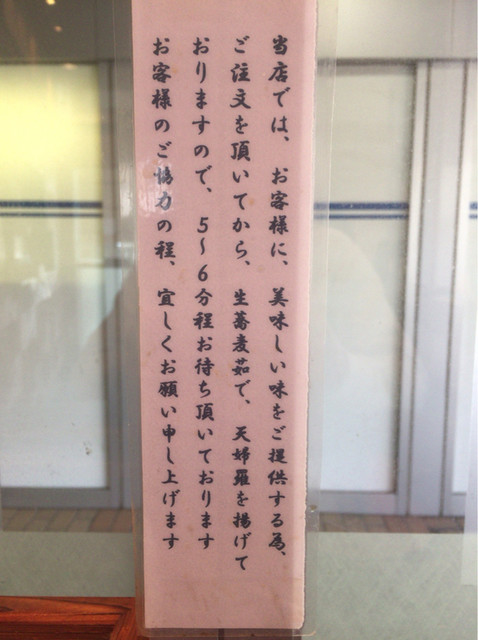 当店では、お客様に、美味しい味をご提供する為、
ご注文を頂いてから、生蕎麦茹で、天婦羅を揚げて
おりますので、5〜6分程お待ち頂いております
お客様のご協力の程、宜しくお願い申し上げます